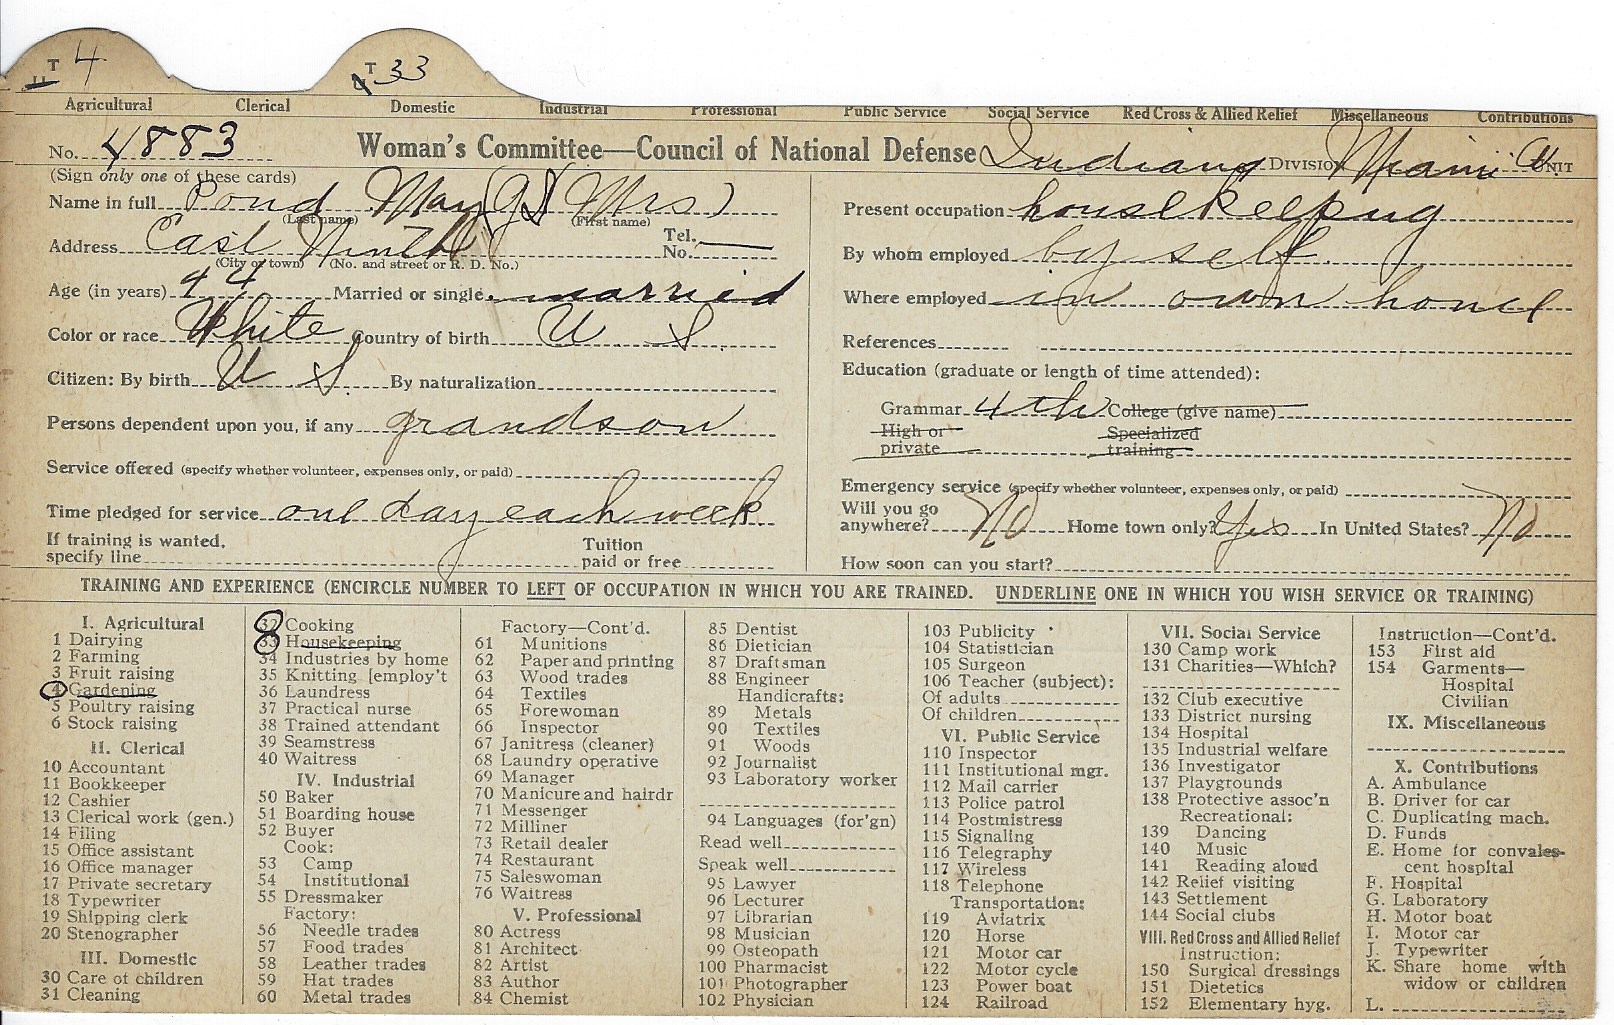 T 4 T 33
Agricultural Clerical Domestic Industrial Professional Public Service Social Service Red Cross & Allied Relief Miscellaneous Contributions
No. 4883 Woman's Committee—Council of National Defense Indiana DIVISION Miami Co. UNIT
(Sign only one of these cards)
Name in full Pond May (Mrs)
(Last name) (First name)
Address East Ninth Tel. No.
(City or town) (No. and street or R. D. No.)
Age (in years) 44 Married or single married
Color or race White Country of birth U S.
Citizen: By birth U S. By naturalization
Persons dependent upon you, if any grandson
Service offered (specify whether volunteer, expenses only, or paid)
Time pledged for service one day each week
If training is wanted, specify line Tuition paid or free
Present occupation housekeeping
By whom employed by self.
Where employed in own home
References
Education (graduate or length of time attended):
Grammar 4th College (give name)
High or private Specialized training
Emergency service (specify whether volunteer, expenses only, or paid)
Will you go anywhere? No Home town only? Yes In United States? No
How soon can you start?
TRAINING AND EXPERIENCE (ENCIRCLE NUMBER TO LEFT OF OCCUPATION IN WHICH YOU ARE TRAINED. UNDERLINE ONE IN WHICH YOU WISH SERVICE OR TRAINING)
I. Agricultural
1 Dairying
2 Farming
3 Fruit raising
4 Gardening
5 Poultry raising
6 Stock raising
II. Clerical
10 Accountant
11 Bookkeeper
12 Cashier
13 Clerical work (gen.)
14 Filing
15 Office assistant
16 Office manager
17 Private secretary
18 Typewriter
19 Shipping clerk
20 Stenographer
III. Domestic
30 Care of children
31 Cleaning
32 Cooking
33 Housekeeping
34 Industries by home
35 Knitting [employ't
36 Laundress
37 Practical nurse
38 Trained attendant
39 Seamstress
40 Waitress
IV. Industrial
50 Baker
51 Boarding house
52 Buyer
Cook:
53 Camp
54 Institutional
55 Dressmaker
Factory:
56 Needle trades
57 Food trades
58 Leather trades
59 Hat trades
60 Metal trades
Factory—Cont'd.
61 Munitions
62 Paper and printing
63 Wood trades
64 Textiles
65 Forewoman
66 Inspector
67 Janitress (cleaner)
68 Laundry operative
69 Manager
70 Manicure and hairdr
71 Messenger
72 Milliner
73 Retail dealer
74 Restaurant
75 Saleswoman
76 Waitress
V. Professional
80 Actress
81 Architect
82 Artist
83 Author
84 Chemist
85 Dentist
86 Dietician
87 Draftsman
88 Engineer
Handicrafts:
89 Metals
90 Textiles
91 Woods
92 Journalist
93 Laboratory worker
94 Languages (for'gn)
Read well
Speak well
95 Lawyer
96 Lecturer
97 Librarian
98 Musician
99 Osteopath
100 Pharmacist
101 Photographer
102 Physician
103 Publicity
104 Statistician
105 Surgeon
106 Teacher (subject):
Of adults
Of children
VI. Public Service
110 Inspector
111 Institutional mgr.
112 Mail carrier
113 Police patrol
114 Postmistress
115 Signaling
116 Telegraphy
117 Wireless
118 Telephone
Transportation:
119 Aviatrix
120 Horse
121 Motor car
122 Motor cycle
123 Power boat
124 Railroad
VII. Social Service
130 Camp work
131 Charities—Which?
132 Club executive
133 District nursing
134 Hospital
135 Industrial welfare
136 Investigator
137 Playgrounds
138 Protective assoc'n
Recreational:
139 Dancing
140 Music
141 Reading aloud
142 Relief visiting
143 Settlement
144 Social clubs
VIII. Red Cross and Allied Relief
Instruction:
150 Surgical dressings
151 Dietetics
152 Elementary hyg.
Instruction—Cont'd.
153 First aid
154 Garments—
Hospital
Civilian
IX. Miscellaneous
X. Contributions
A. Ambulance
B. Driver for car
C. Duplicating mach.
D. Funds
E. Home for convales-
cent hospital
F. Hospital
G. Laboratory
H. Motor boat
I. Motor car
J. Typewriter
K. Share home with
widow or children
L.